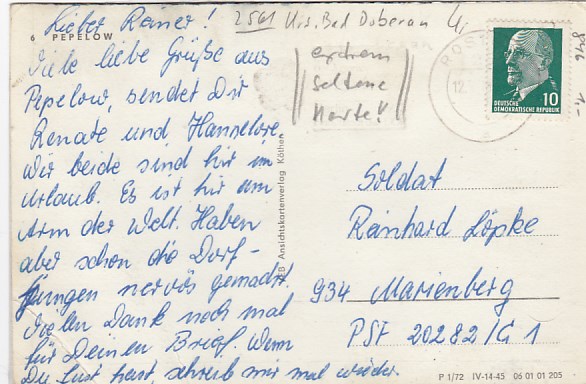 Lieber Reiner!
6 PEPELOW
Viele liebe Grüße aus
Pepelow, sendet Dir
Renate und Hannelore.
Wir beide sind hir im
Urlaub. Es ist hir am
Arm der Welt. Haben
aber schon die Dorf-
jungen nervös gemacht.
Vielen Dank noch mal
für Deinen Brief. Wenn
Du Lust hast, schreib mir mal wieder.
2561 Krs. Bad Doberan
extrem
seltene
Karte!!
Ansichtskartenverlag Köthen
ROS
12.
DEUTSCHE
DEMOKRATISCHE REPUBLIK
10
1,-
Soldat
Reinhard Löpke
934 Marienberg
PSF 20282/G 1
P 1/72 IV-14-45 06 01 01 205